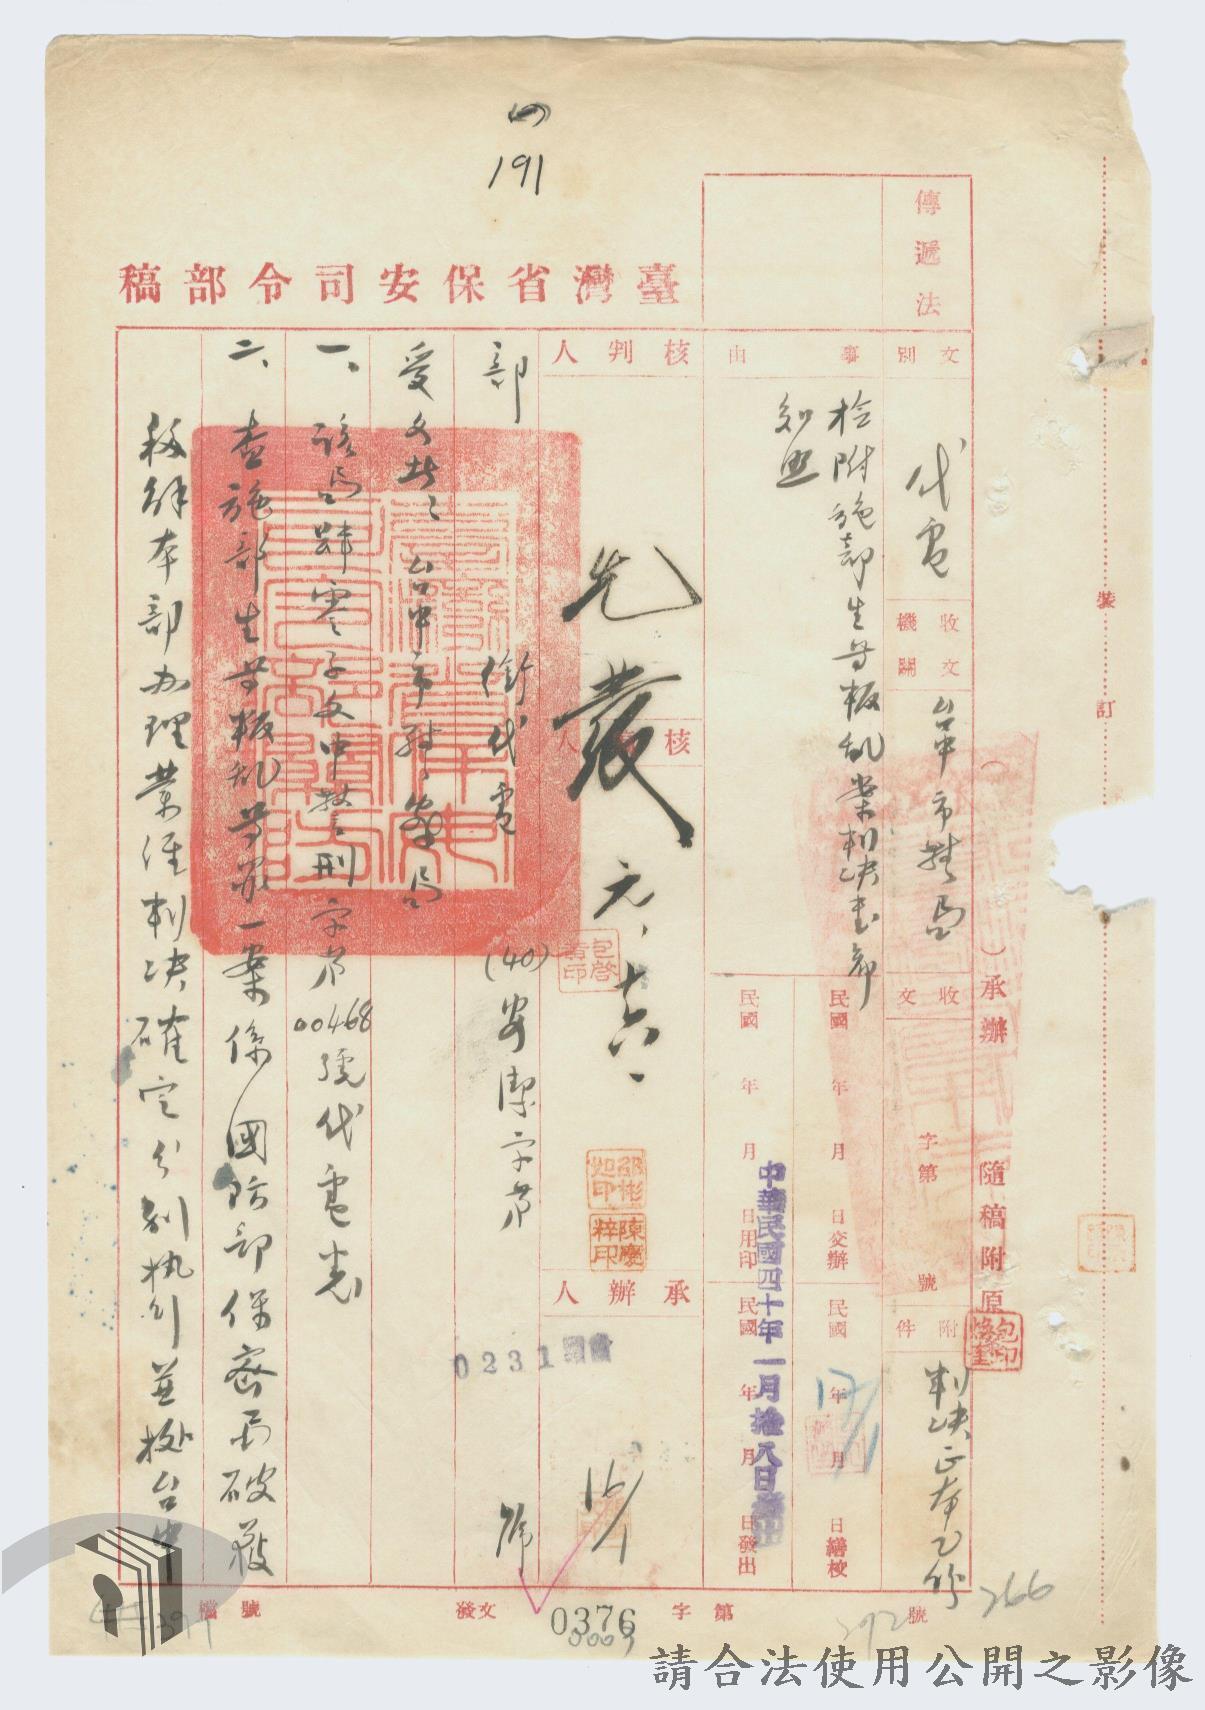 四
191
臺灣省保安司令部稿
傳遞法
文別
代電
收文機關
台中市警局
收文
字第
號
附件
判決正本乙份
（　）承辦
隨稿附原
事由
檢附施部生等叛乱案判決書希
知照
民國　年　月　日交辦
民國　年　月　日繕校
17/1
民國　年　月　日用印
民國　年　月　日發出
中華民國四十年一月拾八日
核判人
先發
元、十六、
核　人
包啓黃印
邵彬如印
陳慶粹印
承辦人
16/1
0231
部　銜代電　(40)安潔字第　號
受文者：台中市警察局
一、該局肆零子文中警刑字第00468號代電悉
二、查施部生等叛乱等罪一案係國防部保密局破獲
移解本部办理業經判決確定分別執行並據台中
檔號
發文　字第　號
0376
0009
292
266
裝
訂
請合法使用公開之影像